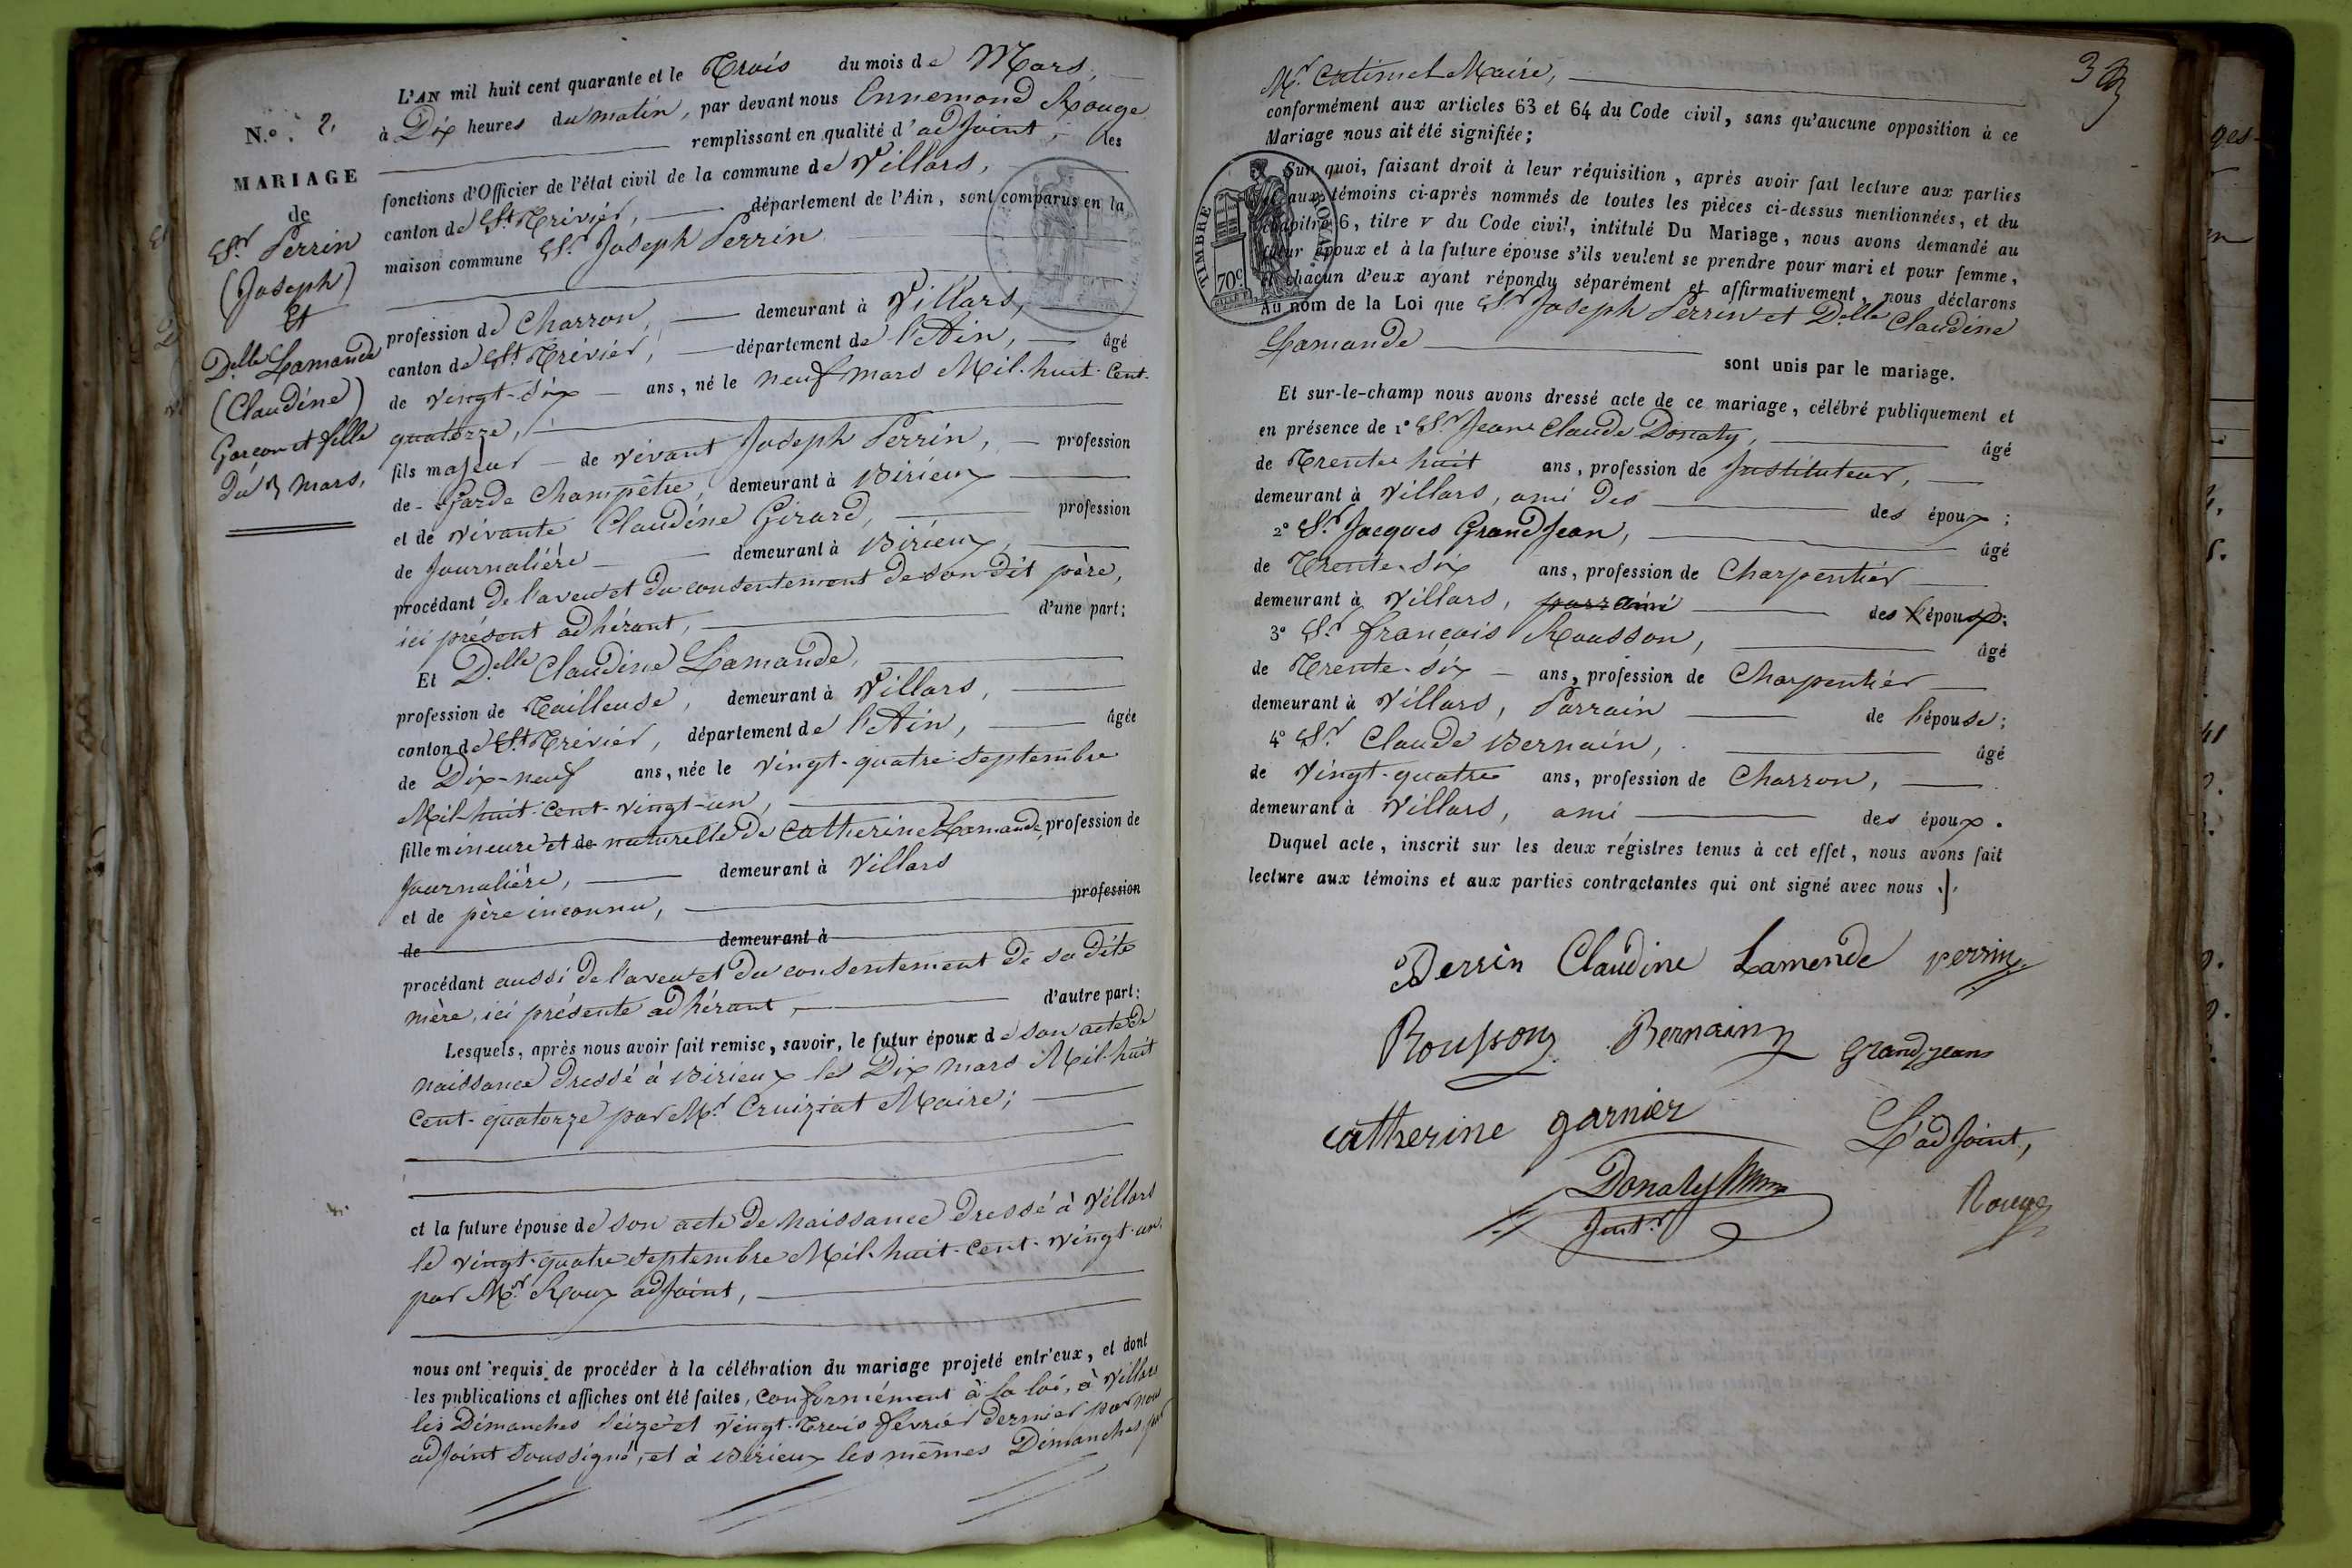 N.º 2.
MARIAGE
de
Sr. Perrin
(Joseph)
Et
Delle Lamande
(Claudine)
Garçon et fille
du 3 mars,
L'AN mil huit cent quarante et le Trois du mois de Mars,
à Dix heures du matin, par devant nous Ennemond Rouge
remplissant en qualité d'adjoint, les
fonctions d'Officier de l'état civil de la commune de Villars,
canton de St. Trivier, département de l'Ain, sont comparus en la
maison commune Sr. Joseph Perrin
profession de Charron, demeurant à Villars,
canton de St. Trivier, département de l'Ain, âgé
de vingt-six ans, né le neuf mars Mil-huit-Cent-
quatorze,
fils majeur de vivant Joseph Perrin, profession
de Garde Champêtre, demeurant à Birieux
et de vivante Claudine Girard, profession
de Journalière demeurant à Birieux,
procédant de l'aveu et du consentement de son dit père,
ici présent adhérant, d'une part;
Et Delle Claudine Lamande,
profession de Tailleuse, demeurant à Villars,
canton de St. Trivier, département de l'Ain, âgée
de Dix-neuf ans, née le vingt-quatre septembre
Mil-huit-Cent-vingt-un,
fille mineure et de naturelle de Catherine Lamande, profession de
Journalière, demeurant à Villars
et de père inconnu, profession
de demeurant à
procédant aussi de l'aveu et du consentement de sa dite
mère, ici présente adhérant, d'autre part:
Lesquels, après nous avoir fait remise, savoir, le futur époux de son acte de
naissance dressé à Birieux le Dix mars Mil-huit
Cent-quatorze par Mr. Cruiziat Maire;
et la future épouse de son acte de naissance dressé à Villars
le vingt-quatre septembre Mil-huit-Cent-vingt-un,
par Mr. Roux adjoint,
nous ont requis de procéder à la célébration du mariage projeté entr'eux, et dont
les publications et affiches ont été faites, conformément à la loi, à Villars
les Dimanches seize et vingt-trois février dernier par nous
adjoint soussigné, et à Birieux les mêmes Dimanches par
3
Mr. Catimel Maire,
conformément aux articles 63 et 64 du Code civil, sans qu'aucune opposition à ce
Mariage nous ait été signifiée;
Sur quoi, faisant droit à leur réquisition, après avoir fait lecture aux parties
et aux témoins ci-après nommés de toutes les pièces ci-dessus mentionnées, et du
chapitre 6, titre v du Code civil, intitulé Du Mariage, nous avons demandé au
futur époux et à la future épouse s'ils veulent se prendre pour mari et pour femme,
et chacun d'eux ayant répondu séparément et affirmativement, nous déclarons
Au nom de la Loi que Sr. Joseph Perrin et Delle Claudine
Lamande
sont unis par le mariage.
TIMBRE
ROYAL
70c.
Et sur-le-champ nous avons dressé acte de ce mariage, célébré publiquement et
en présence de 1º Sr. Jean Claude Donaty, âgé
de Trente huit ans, profession de Instituteur,
demeurant à Villars, ami des des époux;
2º Sr. Jacques Grandjean, âgé
de Trente-six ans, profession de Charpentier
demeurant à Villars, ami des époux;
3º Sr. françois Rousson, âgé
de Trente-six ans, profession de Charpentier
demeurant à Villars, Parrain de l'épouse;
4º Sr. Claude Bernain, âgé
de vingt-quatre ans, profession de Charron,
demeurant à Villars, ami des époux.
Duquel acte, inscrit sur les deux régistres tenus à cet effet, nous avons fait
lecture aux témoins et aux parties contractantes qui ont signé avec nous.
Perrin Claudine Lamende perrin
Rousson Bernain Grandjean
catherine garnier
L'adjoint,
Donaty
Instr.
Rouge